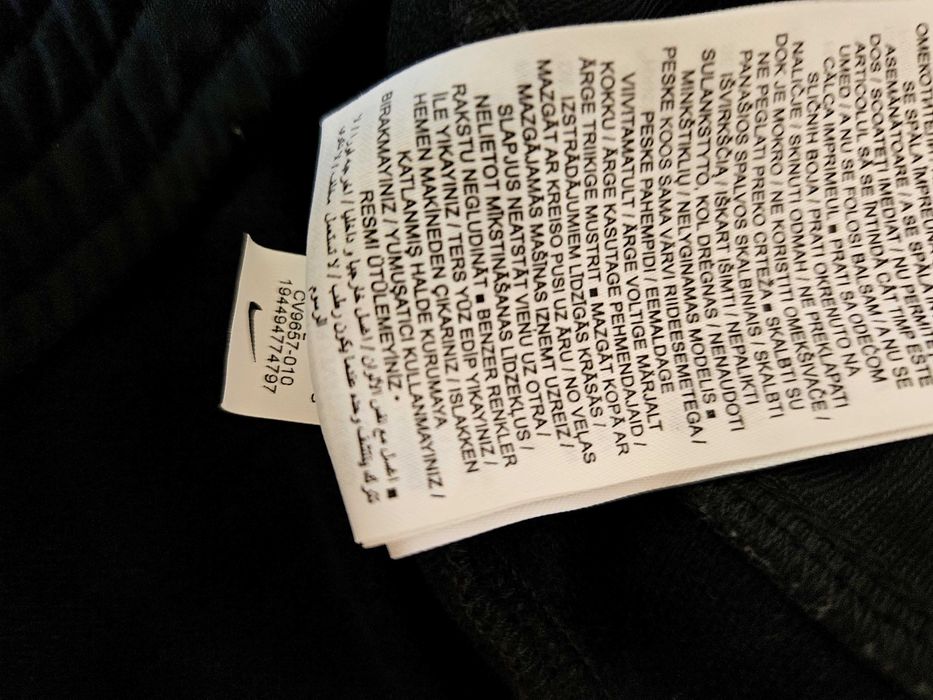 SE SPALA ÎMPREUN
ASEMĂNĂTOARE / A SE SPĂLA ÎN
DOS / SCOATEȚI IMEDIAT / NU PERMIT
ARTICOLUL SĂ SE ÎNTINDĂ CÂT TIMP ESTE
UMED / A NU SE FOLOSI BALSAM / A NU SE
CĂLCA IMPRIMEUL ■ PRATI SA ODEĆOM
SLIČNIH BOJA / PRATI OKRENUTO NA
NALIČJE / SKINUTI ODMAH / NE PREKLAPATI
DOK JE MOKRO / NE KORISTITI OMEKŠIVAČE /
NE PEGLATI PREKO CRTEŽA ■ SKALBTI SU
PANAŠIOS SPALVOS SKALBINIAIS / SKALBTI
IŠVIRKŠČIĄ / IŠKART IŠIMTI / NEPALIKTI
SULANKSTYTO, KOL DRĖGNAS / NENAUDOTI
MINKŠTIKLIŲ / NELYGINAMAS MODELIS ■
PESKE KOOS SAMA VÄRVI RIIDEESEMETEGA /
PESKE PAHEMPIDI / EEMALDAGE
VIIVITAMATULT / ÄRGE VOLTIGE MÄRJALT
KOKKU / ÄRGE KASUTAGE PEHMENDAJAID /
ÄRGE TRIIKIGE MUSTRIT ■ MAZGĀT KOPĀ AR
IZSTRĀDĀJUMIEM LĪDZĪGĀS KRĀSĀS /
MAZGĀT AR KREISO PUSI UZ ĀRU / NO VEĻAS
MAZGĀJAMĀS MAŠĪNAS IZŅEMT UZREIZ /
SLAPJUS NEATSTĀT VIENU UZ OTRA /
NELIETOT MĪKSTINĀŠANAS LĪDZEKĻUS /
RAKSTU NEGLUDINĀT ■ BENZER RENKLER
İLE YIKAYINIZ / TERS YÜZ EDİP YIKAYINIZ /
HEMEN MAKİNEDEN ÇIKARINIZ / ISLAKKEN
KATLANMIŞ HALDE KURUMAYA
BIRAKMAYINIZ / YUMUŞATICI KULLANMAYINIZ /
RESMİ ÜTÜLEMEYİNİZ ▪
اغسل مع نفس الألوان / اغسل خارجيا و داخليا / اخرجه فورا / لا ■
عندما يكون رطب / لا تستعمل ملطف / لا تكوي
الرسوم
CV9657-010
194494774797